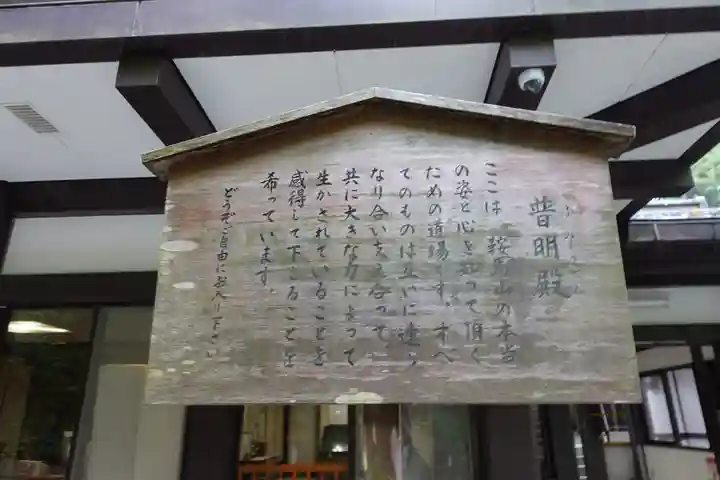 ふみょうでん
普明殿
ここは、鞍馬山の本当
の姿と心を知って頂く
ための道場です。すべ
てのものは互いに連ら
なり合い支え合って、
共に大きな力によって
生かされていることを
感得して下さることを
希っています。
どうぞご自由にお入り下さい